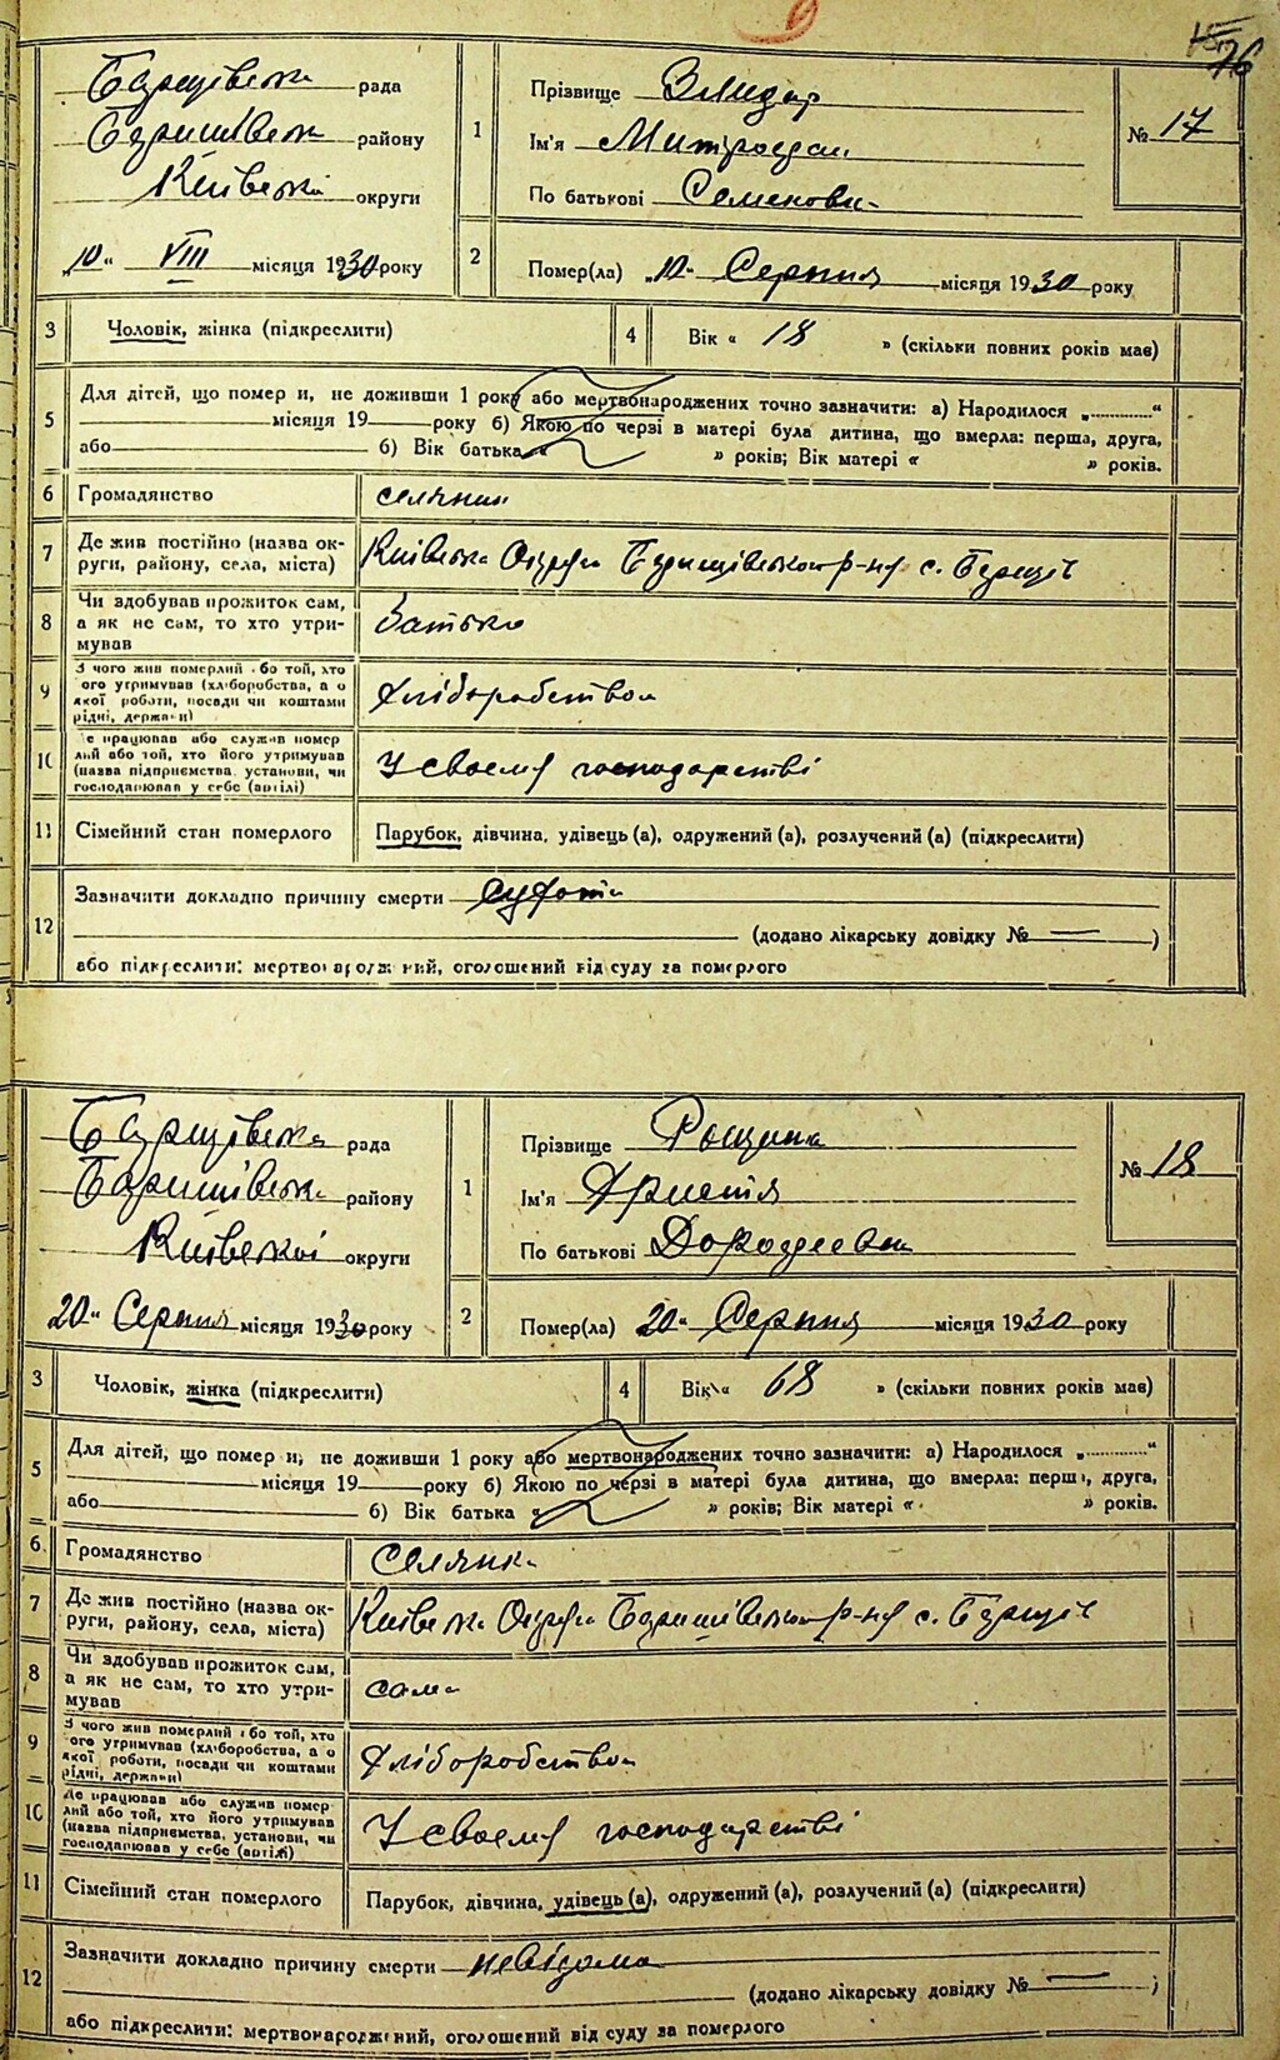 76
рада
району
Київської округи
„10“ VIII місяця 1930 року
1
Прізвище Злидар
Ім'я Митрофан
По батькові Семенович
№ 17
2
Помер(ла) „10“ Серпня місяця 1930 року
3
Чоловік, жінка (підкреслити)
4
Вік « 18 » (скільки повних років має)
5
Для дітей, що помер и, не доживши 1 року або мертвонароджених точно зазначити: а) Народилося „............“
місяця 19 року б) Якою по черзі в матері була дитина, що вмерла: перша, друга,
або б) Вік батька « » років; Вік матері « » років.
6
Громадянство
селянин
7
Де жив постійно (назва ок-
руги, району, села, міста)
Київська Округа р-ну с.
8
Чи здобував прожиток сам,
а як не сам, то хто утри-
мував
Батько
9
З чого жив померлий або той, хто
ого утримував (хліборобства, а о
якої роботи, посади чи коштами
рідні, держави)
Хліборобством
10
е працював або служив помер
лий або той, хто його утримував
(назва підприємства, установи, чи
господарював у себе (артілі)
У своєму господарстві
11
Сімейний стан померлого
Парубок, дівчина, удівець (а), одружений (а), розлучений (а) (підкреслити)
12
Зазначити докладно причину смерти Сухота
(додано лікарську довідку № — )
або підкреслити: мертвонароджений, оголошений від суду за померлого
рада
Баришівська району
Київської округи
20“ Серпня місяця 1930 року
1
Прізвище Рощина
Ім'я Христя
По батькові Дорофеевна
№ 18
2
Помер(ла) 20“ Серпня місяця 1930 року
3
Чоловік, жінка (підкреслити)
4
Вік « 68 » (скільки повних років має)
5
Для дітей, що помер и, не доживши 1 року або мертвонароджених точно зазначити: а) Народилося „............“
місяця 19 року б) Якою по черзі в матері була дитина, що вмерла: перша, друга,
або б) Вік батька « » років; Вік матері « » років.
6.
Громадянство
селянка
7
Де жив постійно (назва ок-
руги, району, села, міста)
Київська Округа Баришівського р-ну с.
8
Чи здобував прожиток сам,
а як не сам, то хто утри-
мував
сама
9
З чого жив померлий або той, хто
ого утримував (хліборобства, а о
якої роботи, посади чи коштами
рідні, держави)
Хліборобством
10
Де працював або служив помер
лий або той, хто його утримував
(назва підприємства, установи, чи
господарював у себе (артілі)
У своєму господарстві
11
Сімейний стан померлого
Парубок, дівчина, удівець (а), одружений (а), розлучений (а) (підкреслити)
12
Зазначити докладно причину смерти невідома
(додано лікарську довідку № — )
або підкреслити: мертвонароджений, оголошений від суду за померлого